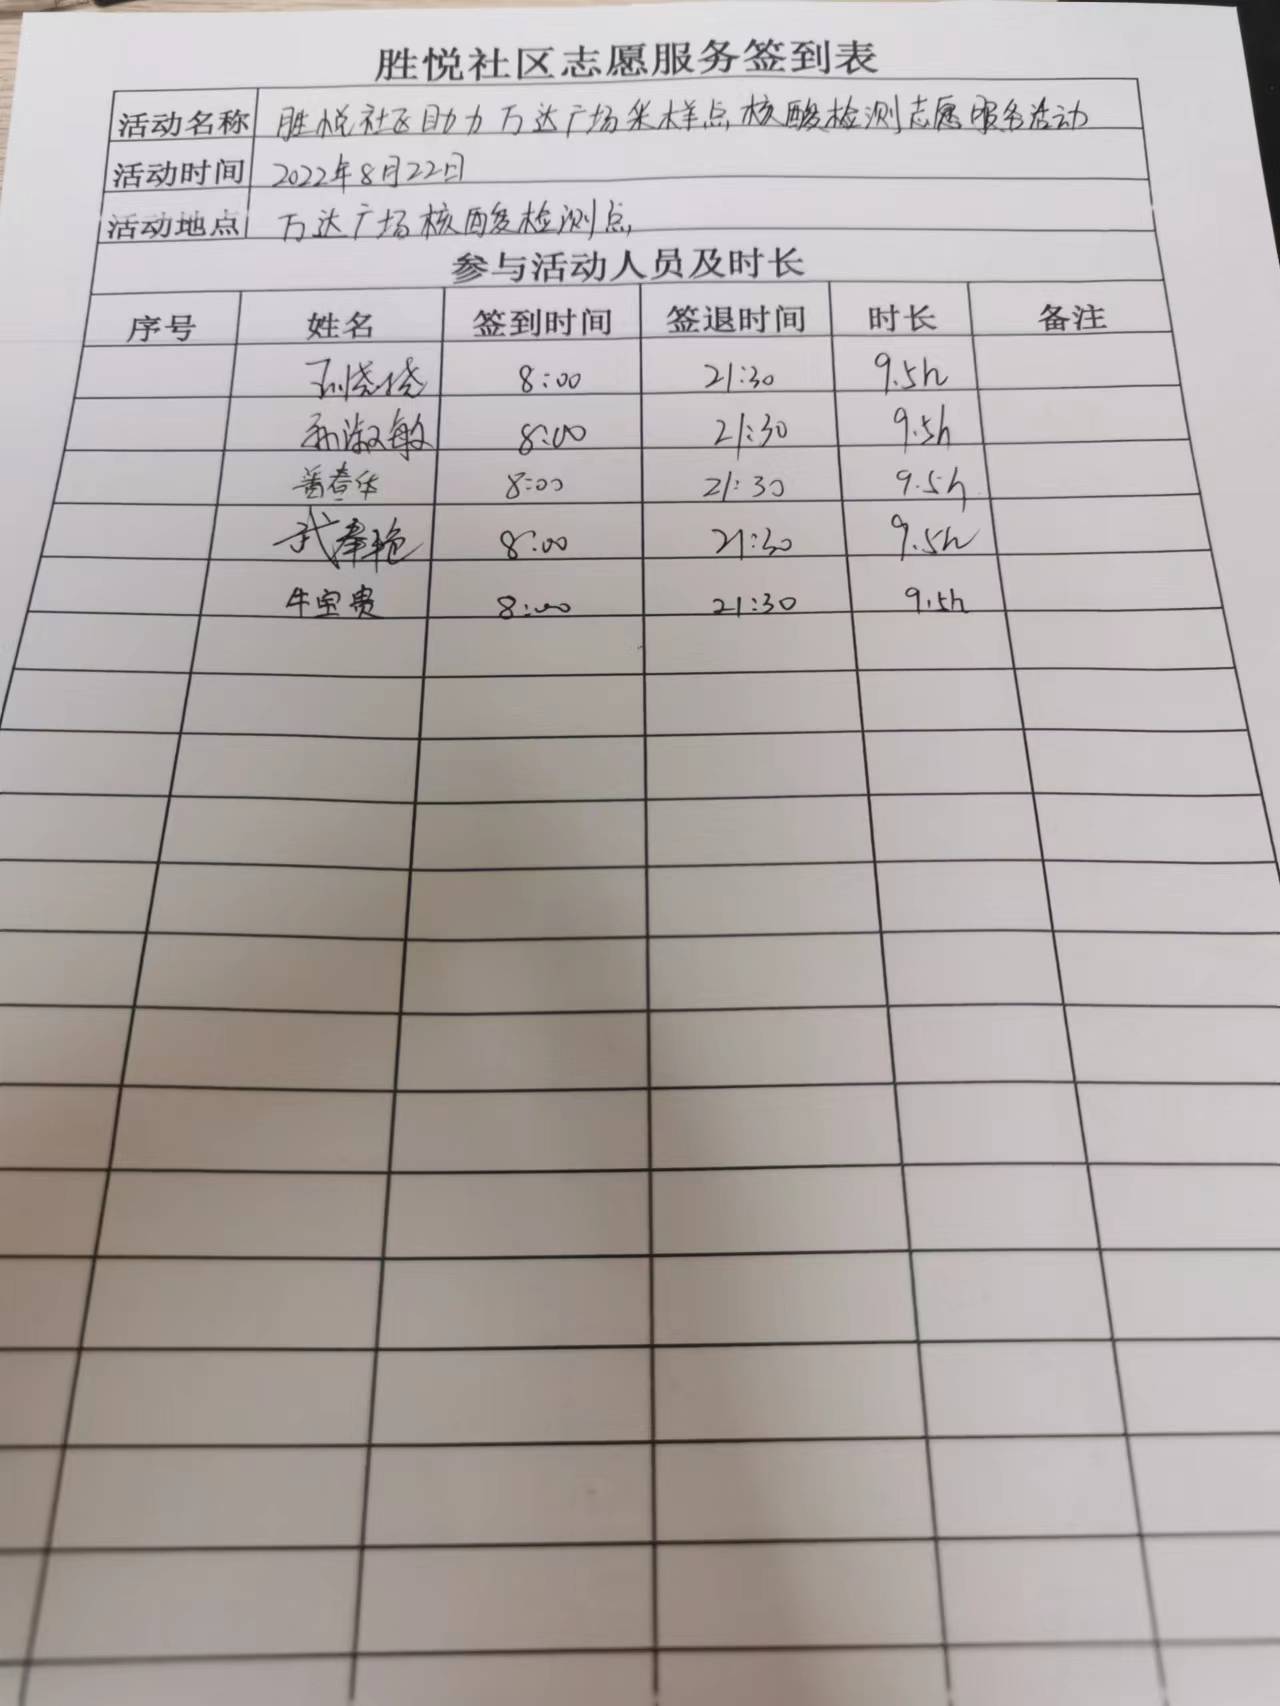 胜悦社区志愿服务签到表
活动名称 胜悦社区助力万达广场采样点核酸检测志愿服务活动
活动时间 2022年8月22日
活动地点 万达广场核酸检测点
参与活动人员及时长
序号 姓名 签到时间 签退时间 时长 备注
8:00 21:30 9.5h
孙淑敏 8:00 21:30 9.5h
春华 8:00 21:30 9.5h
武春艳 8:00 21:30 9.5h
牛宝贵 8:00 21:30 9.5h